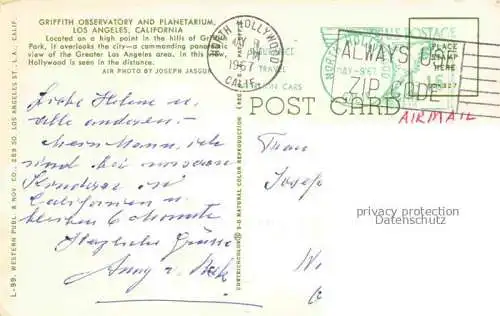 GRIFFITH OBSERVATORY AND PLANETARIUM,
LOS ANGELES, CALIFORNIA
Located on a high point in the hills of Griffith
Park, it overlooks the city—a commanding panoramic
view of the Greater Los Angeles area. In this view,
Hollywood is seen in the distance.
AIR PHOTO BY JOSEPH JASGUR
NORTH HOLLYWOOD
PM
1967
CALIF.
ALWAYS USE
ZIP CODE
U.S. POSTAGE
MAY-8'67
PLACE
STAMP
HERE
POST CARD
AIRMAIL
Liebe Helene u.
alle anderen -
Mein Mann, ich
sind bei unseren
Kindern in
Californien u.
bleiben 6 Monate
Herzliche Grüsse
Anny v.
Frau
Josef
privacy protection
Datenschutz
L-99. WESTERN PUBL. & NOV. CO., 259 SO. LOS ANGELES ST., L.A., CALIF.
NATURAL COLOR REPRODUCTION